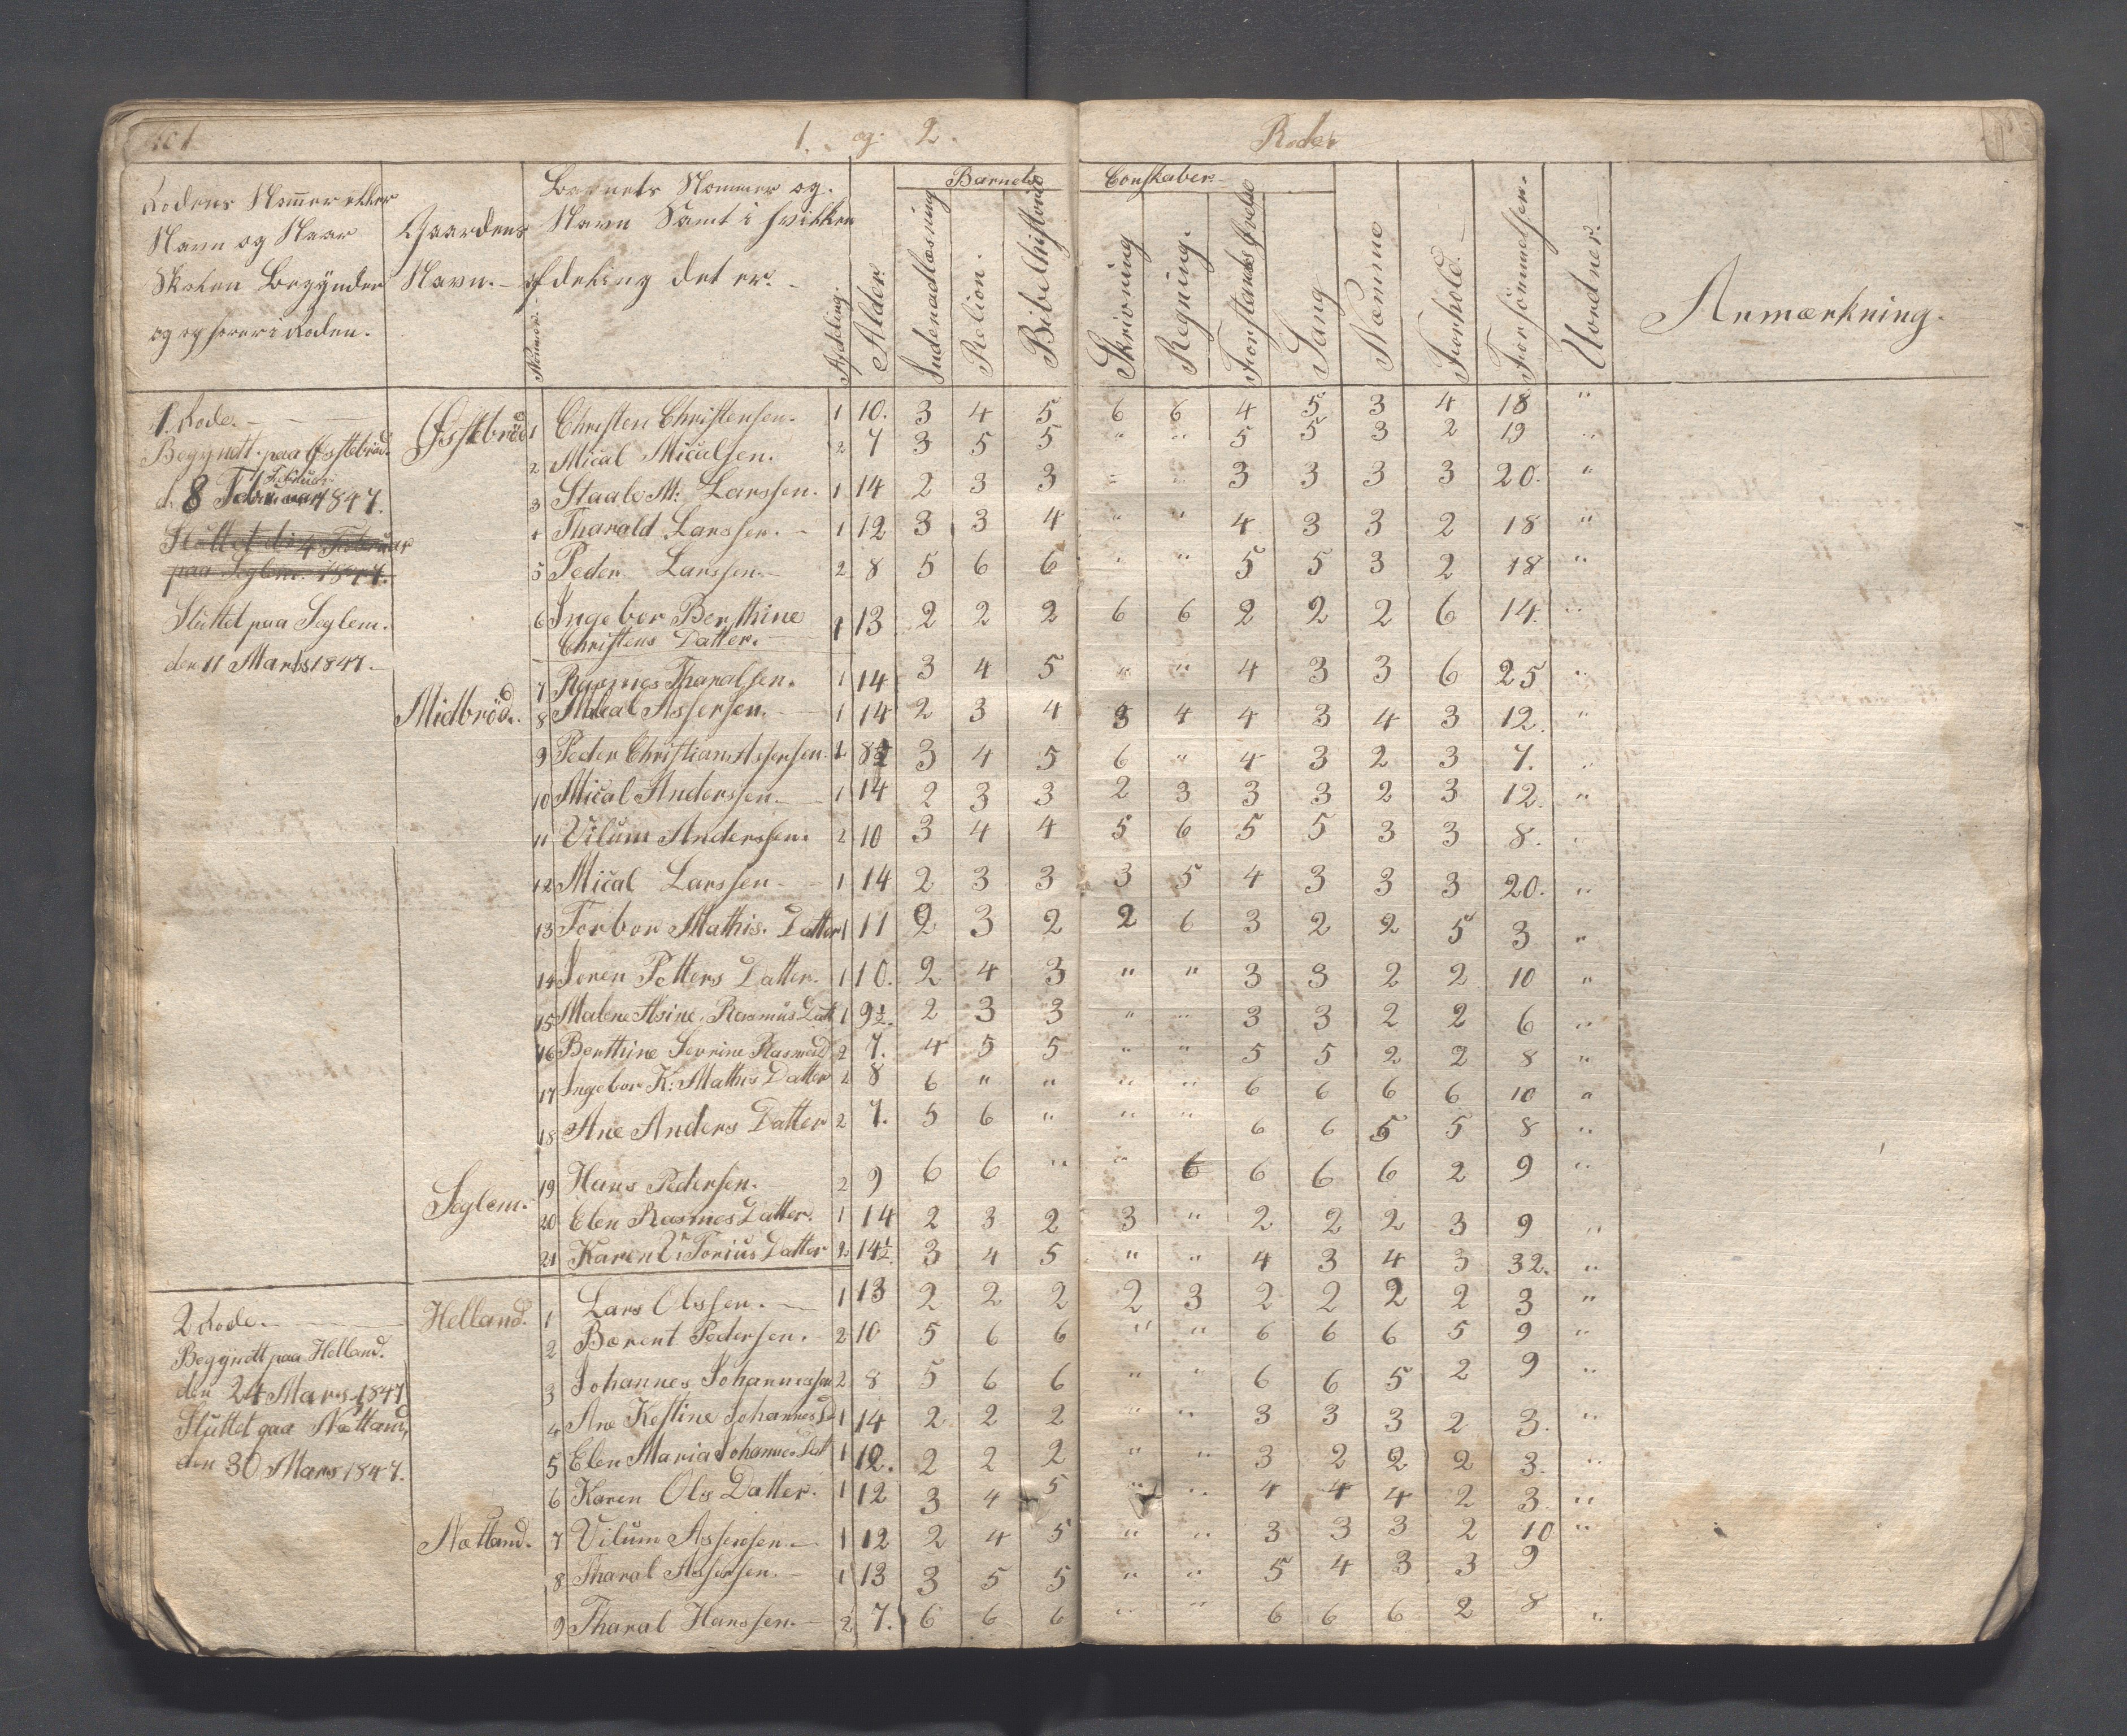 1. og 2. Rode.
Rodens Nommer eller Navn og Naar Skolen Begynder og opHører i Roden.
Gaardens Navn.
Nommer.
Barnets Nommer og Navn Samt i hvilken Afdeling det er.
Afdeling.
Alder.
Barnets Conskaber.
Indenadlæsning
Relion.
Bibel Historie
Skrivning
Regning.
Forstands Øvelse
Sang
Næmme
Forhold.
Forsömmelsen.
Uordner.
Anmærkning.
1. Rode.
Begyndt paa Østebröd.
d. 8 Februar 1847.
Sluttet d. 4 Februar
paa Seglem. 1847.
Sluttet paa Seglem.
den 11 Marts 1847.
Østebröd 1 Christen Christensen. 1 10. 3 4 5 6 6 4 5 3 4 18 "
2 Mical Micalsen. 2 7 3 5 5 " " 5 5 3 2 19 "
3 Staale M: Larssen. 1 14 2 3 3 " 3 3 3 3 20. "
4 Tharald Larssen. 1 12 3 3 4 " " 4 3 3 2 18 "
5 Peder Larssen. 2 8 5 6 6 " " 5 5 3 2 18 "
6 Ingebor Berthine
Christens Datter. 1 13 2 2 2 6 6 2 2 2 6 14. "
7 Rasmus Tharalsen. 1 14 3 4 5 " " 4 3 3 6 25 "
Midbröd. 8 Mical Assersen. 1 14 2 3 4 3 4 4 3 4 3 12. "
9 Peder Christian Assersen. 2 8½ 3 4 5 6 " 4 3 2 3 7. "
10 Mical Anderssen. 1 14 2 3 3 2 3 3 3 2 3 12. "
11 Vilum Anderssen. 2 10 3 4 4 5 6 5 5 3 3 8. "
12 Mical Larssen 1 14 2 3 3 3 5 4 3 3 3 20. "
13 Torbor Mathis. Datter 1 11 2 3 2 2 6 3 2 2 5 3 "
14 Seren Petters Datter. 1 10. 2 4 3 " " 3 3 2 2 10 "
15 Malene Asine. Rasmus Datt 1 9½. 2 3 3 " " 3 3 2 2 6 "
16 Berthine Serrine Rasmus D 2 7. 4 5 5 " " 5 5 2 2 8 "
17 Ingebor K: Mathis Datter 2 8 6 " " " " 6 6 6 6 10 "
18 Ane Anders Datter 2 7. 5 6 " " " 6 6 5 5 8 "
Seglem. 19 Hans Pedersen. 2 9 6 6 " " 6 6 6 6 2 9 "
20 Elen Rasmes Datter. 1 14 2 3 2 3 " 2 2 2 3 9 "
21 Karen V: Torius Datter 2 14½. 3 4 5 " " 4 3 4 3 32. "
2 Rode.
Begyndt paa Helland.
den 24 Mars 1847
Sluttet paa Nætland,
den 30 Mars 1847.
Helland. 1 Lars Olssen. 1 13 2 2 2 2 3 2 2 2 2 3 "
2 Bærent Pedersen. 2 10 5 6 6 " " 6 6 6 5 9 "
3 Johannes Johannessen 2 8 5 6 6 " " 6 6 5 2 9 "
4 Ane Kestine Johannes D 1 14 2 2 2 " " 3 3 3 2 3. "
5 Elen Maria Johannes Datt 1 12. 2 2 2 " " 3 2 2 2 3. "
6 Karen Ols Datter. 1 12 3 4 5 " " 4 4 4 2 3. "
Nætland. 7 Vilum Assersen. 1 12 2 4 5 " " 3 3 3 2 10 "
8 Tharal Assersen. 1 13 3 5 5 " " 5 4 3 3 9
9 Tharal Hanssen. 2 7. 6 6 6 " " 6 6 6 2 8 "